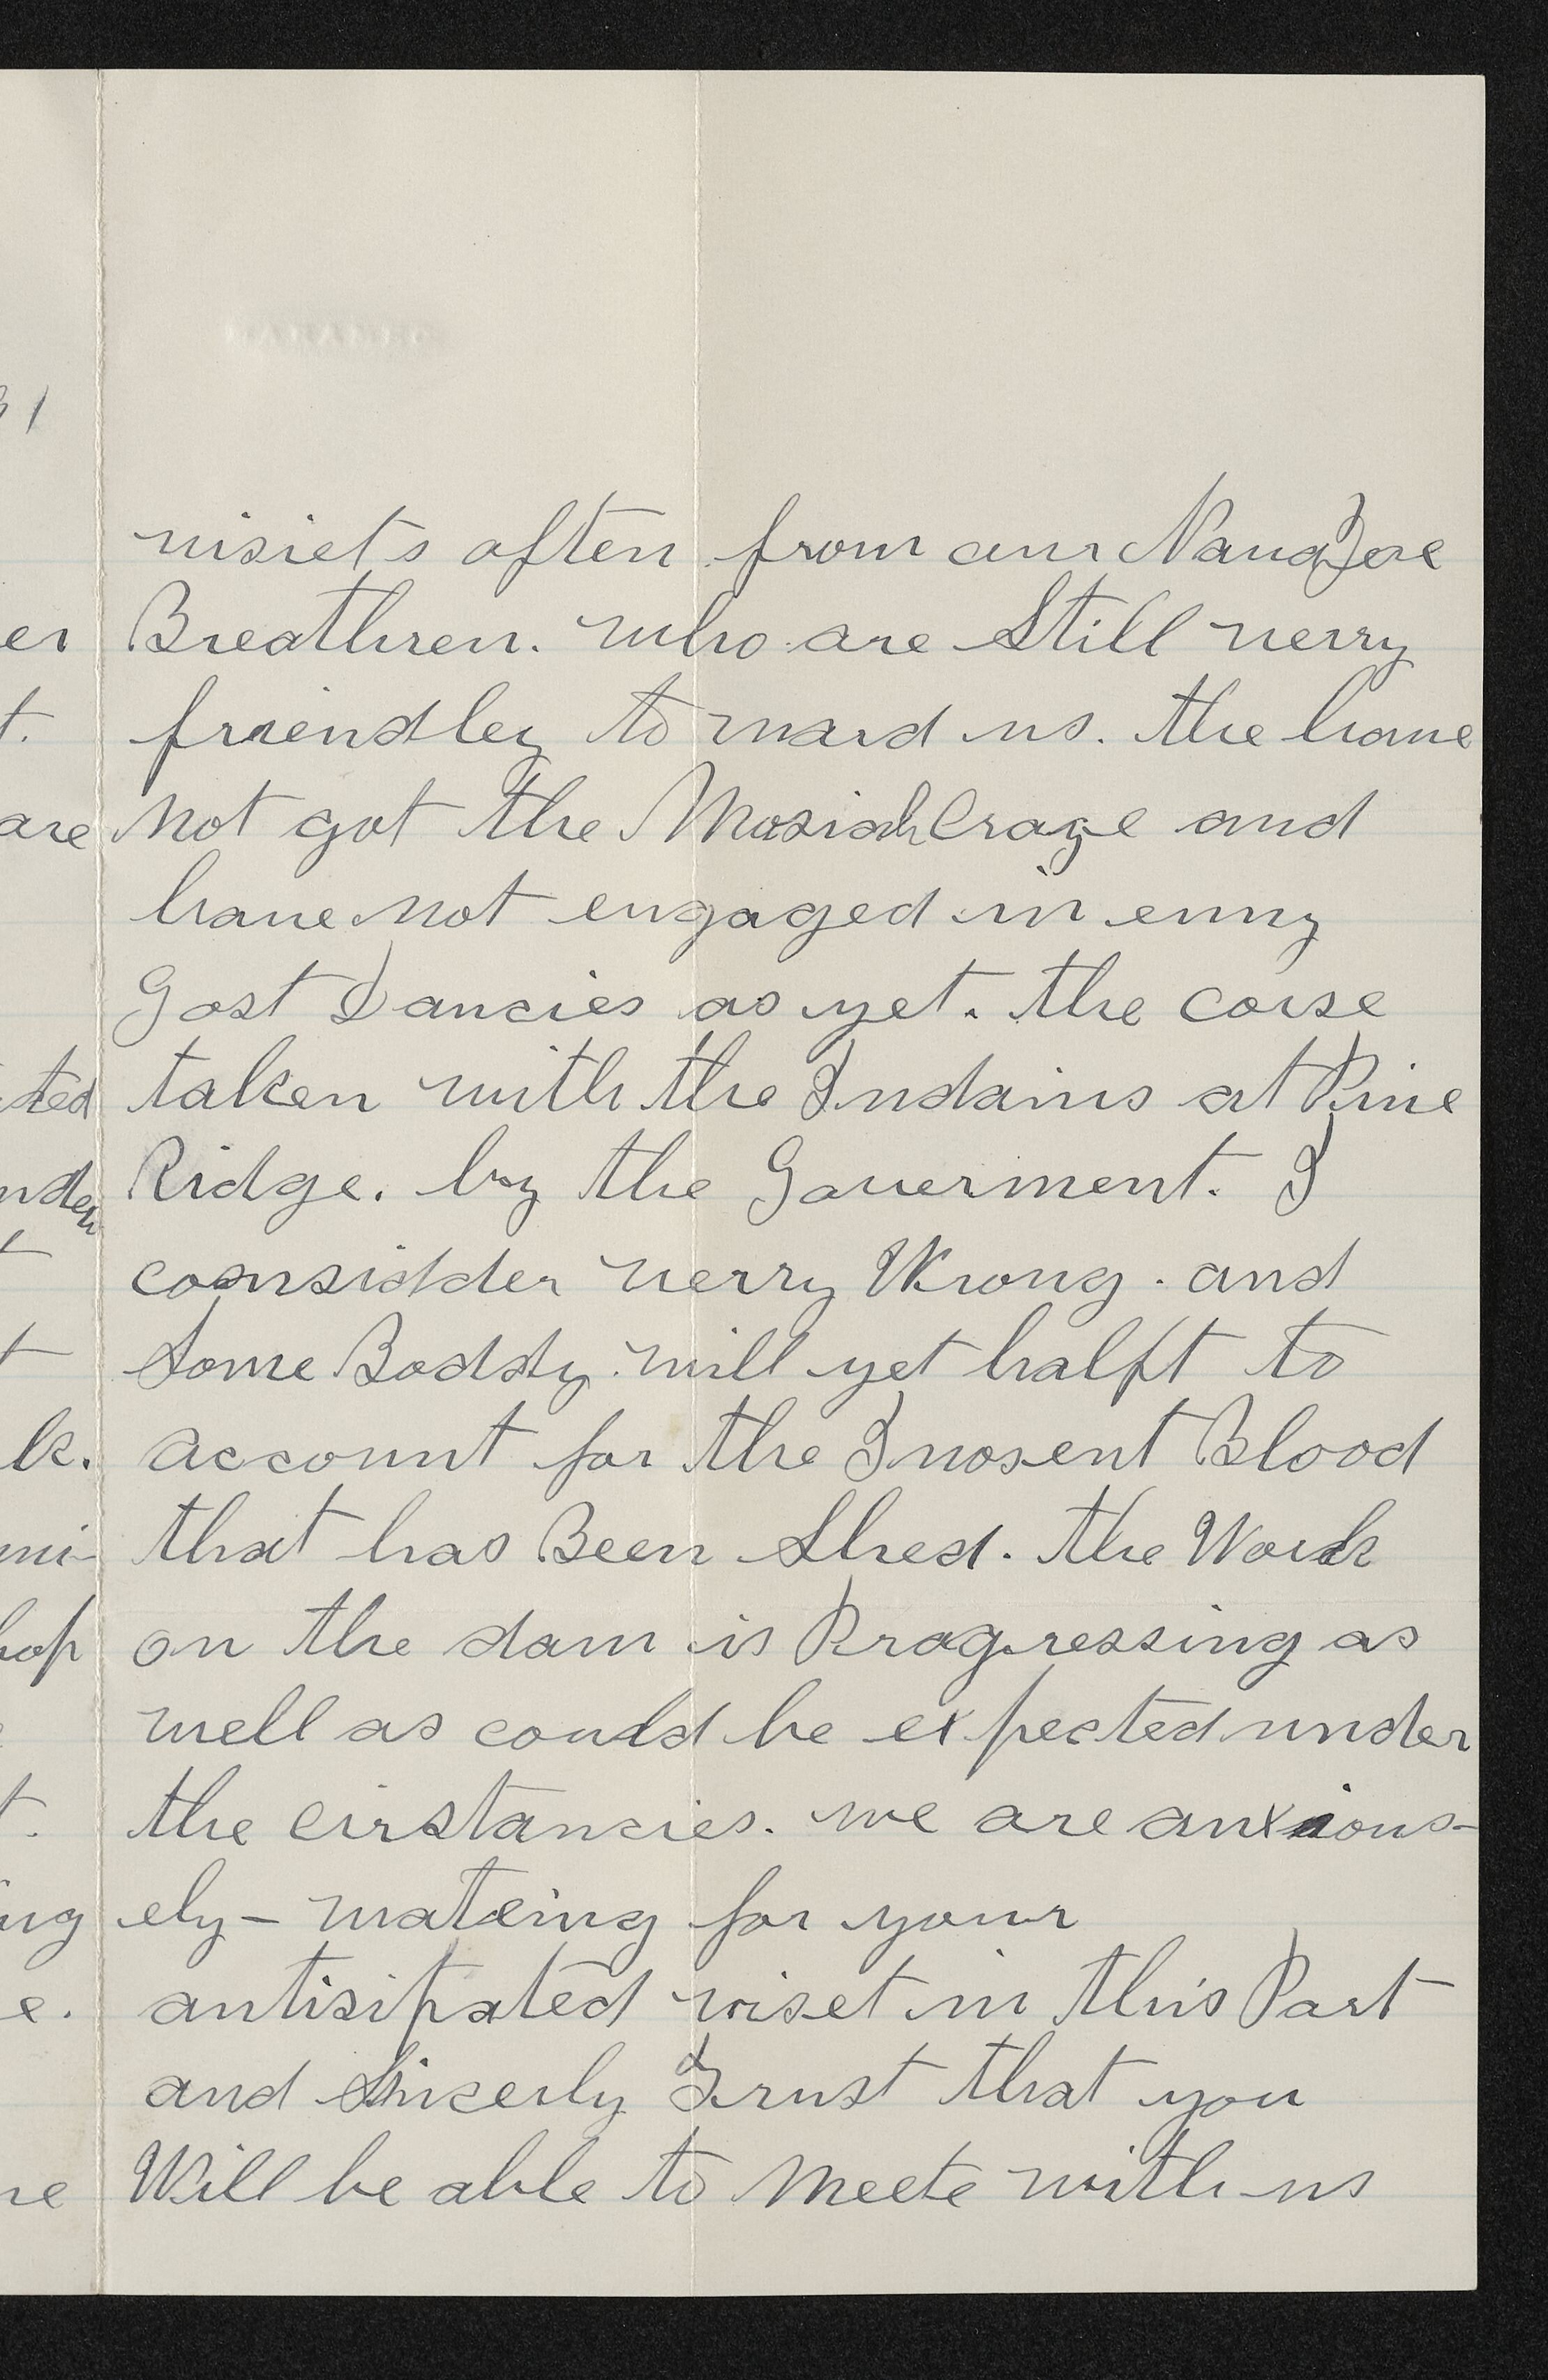 visiets often from our NavaJoe
Breathren. who are Still verry
friendley to ward us. the have
Not got the Mosiah Craze and
have Not engaged in enny
Gost Dancies as yet. the corse
taken with the Indains at Pine
Ridge. by the Goverment. I
considder verry Wrong. and
Some Boddy will yet halft to
account for the Inosent Blood
that has Been Shed. the Work
on the dam is Progressing as
well as could be expected under
the cirstancies. we are anxious-
ely- wateing for your
antisipated viset in this Part
and Sincerly Trust that you
Will be able to Meete with us